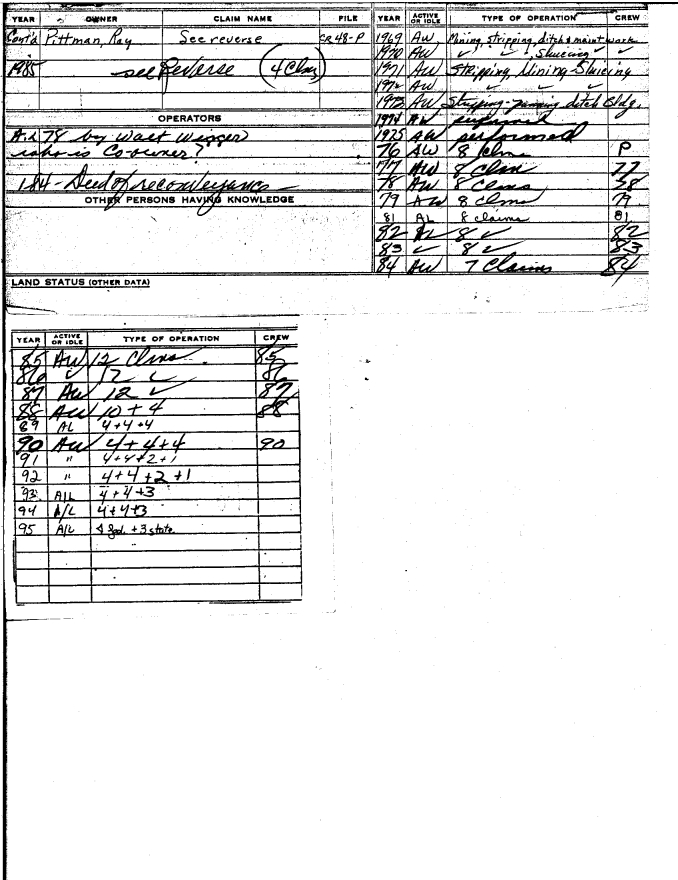 YEAR OWNER CLAIM NAME FILE
Cont'd Pittman, Ray See reverse CR 48-P
1985 see Reverse (4 Clms)
OPERATORS
by Walt
who is Co-owner?
184 - Deed of reconveyance
OTHER PERSONS HAVING KNOWLEDGE
LAND STATUS (OTHER DATA)
YEAR ACTIVE OR IDLE TYPE OF OPERATION CREW
1969 AW Mining, stripping, ditch & maint work
1970 AW ✓ ✓ , Sluicing ✓ ✓
1971 AW Stripping, Mining-Sluicing
1972 AW ✓ ✓ ✓
1973 AW Stripping-panning, ditch Bldg.
1974 AW performed
1975 AW performed
76 AW 8 Clms P
77 AW 8 Clms 77
78 AW 8 Clms 78
79 AW 8 Clms 79
81 AL 8 claims 81
82 AL 8 ✓ 82
83 ✓ 8 ✓ 83
84 AW 7 Claims 84
YEAR ACTIVE OR IDLE TYPE OF OPERATION CREW
85 AW 12 Clms 85
86 ✓ 12 ✓ 86
87 AW 12 ✓ 87
88 AW 10 + 4 88
89 AL 4 + 4 + 4
90 AW 4 + 4 + 4 90
91 " 4 + 4 + 2 + 1
92 " 4 + 4 + 2 + 1
93 A/L 4 + 4 + 3
94 A/L 4 + 4 + 3
95 A/L 4 fed. + 3 state